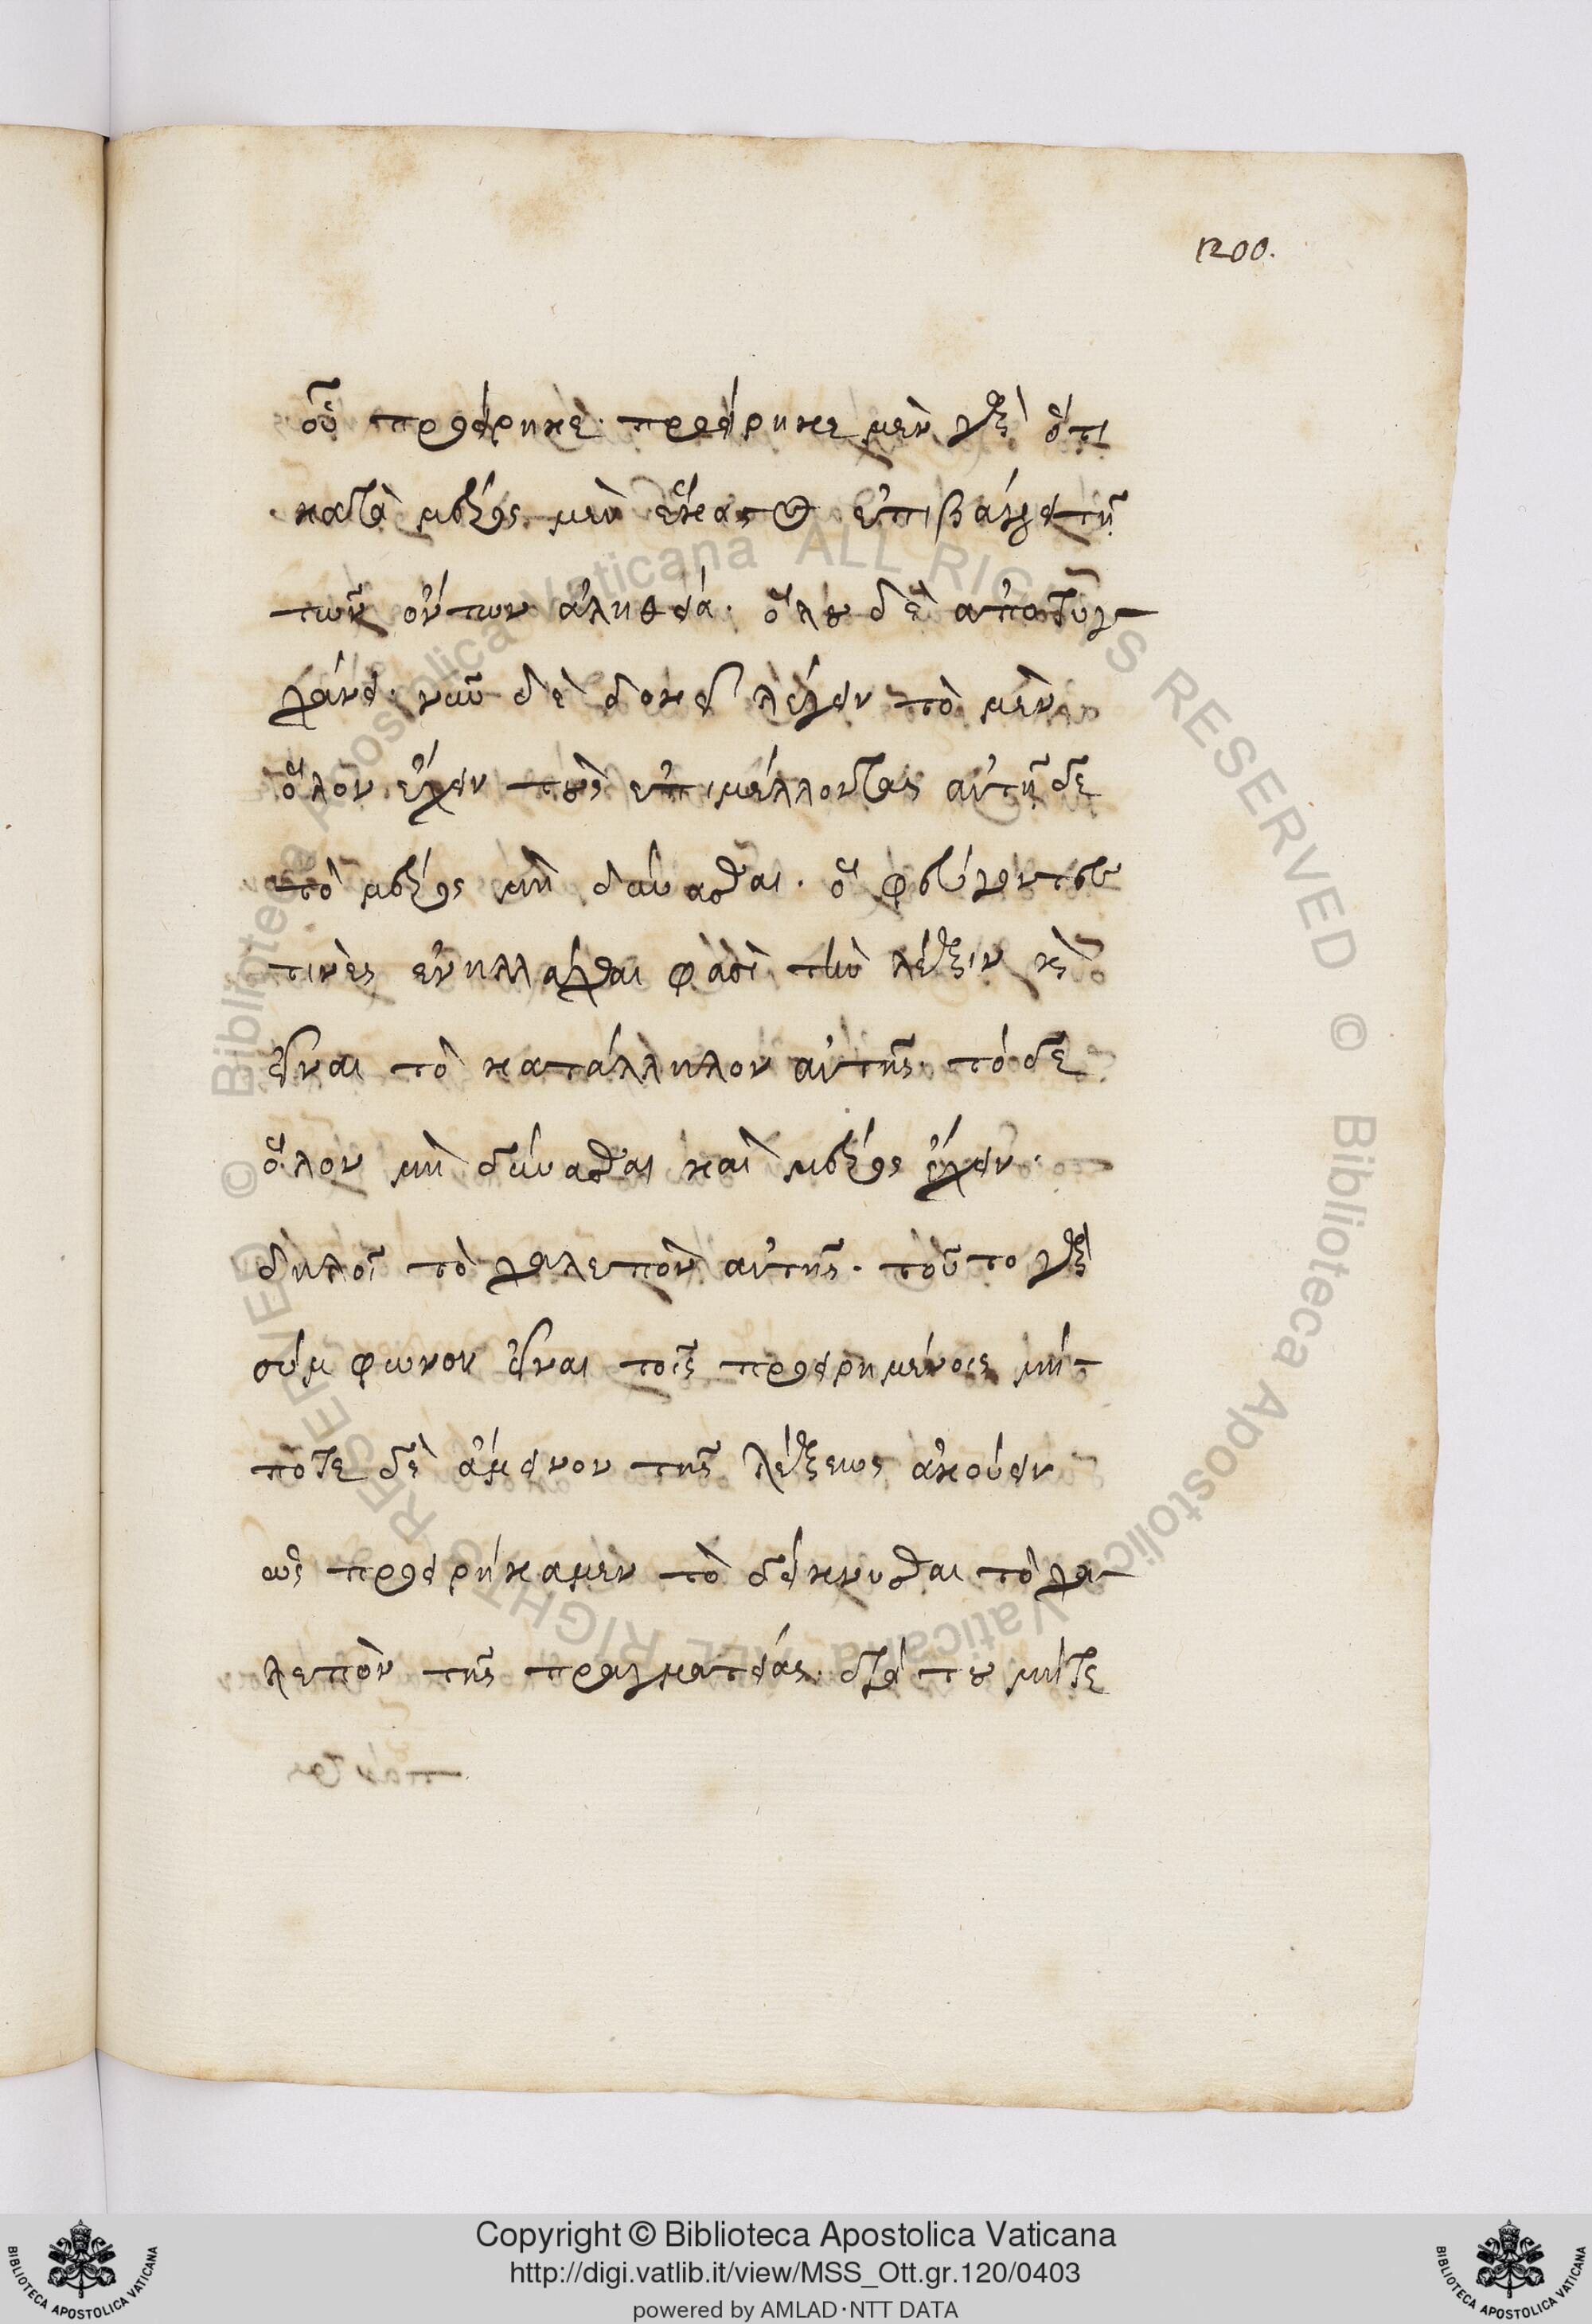 1200.
οὗ προείρηκε· προείρηκε μὲν γὰρ ὅτι
κατὰ μέρος μὲν ἕκαστος ἐπιβάλλει τῇ
τῶν ὄντων ἀληθεία· ὅλου δὲ ἀποτυγ-
χάνει· νῦν δὲ δοκεῖ λέγειν τὸ μὲν
ὅλον ἔχειν τοὺς ἐπιμέλλοντας αὐτῇ δὲ
τὸ μέρος μὴ δύνασθαι. ὃ φεύγοντες
τινὲς ἐνηλλάχθαι φασὶ τὴν λέξιν καὶ
εἶναι τὸ κατάλληλον αὐτῆς· τὸ δὲ
ὅλον μὴ δύνασθαι καὶ μέρος ἔχειν·
δηλοῖ τὸ χαλεπὸν αὐτῆς. τοῦτο γὰρ
σύμφωνον εἶναι τοῖς προειρημένοις μή-
ποτε δὲ ἄμεινον τῆς λέξεως ἀκούειν
ὡς προειρήκαμεν τὸ δείκνυσθαι τὸ χα-
λεπὸν τῆς πραγματείας. διὰ του μήτε
Copyright © Biblioteca Apostolica Vaticana
http://digi.vatlib.it/view/MSS_Ott.gr.120/0403
powered by AMLAD·NTT DATA